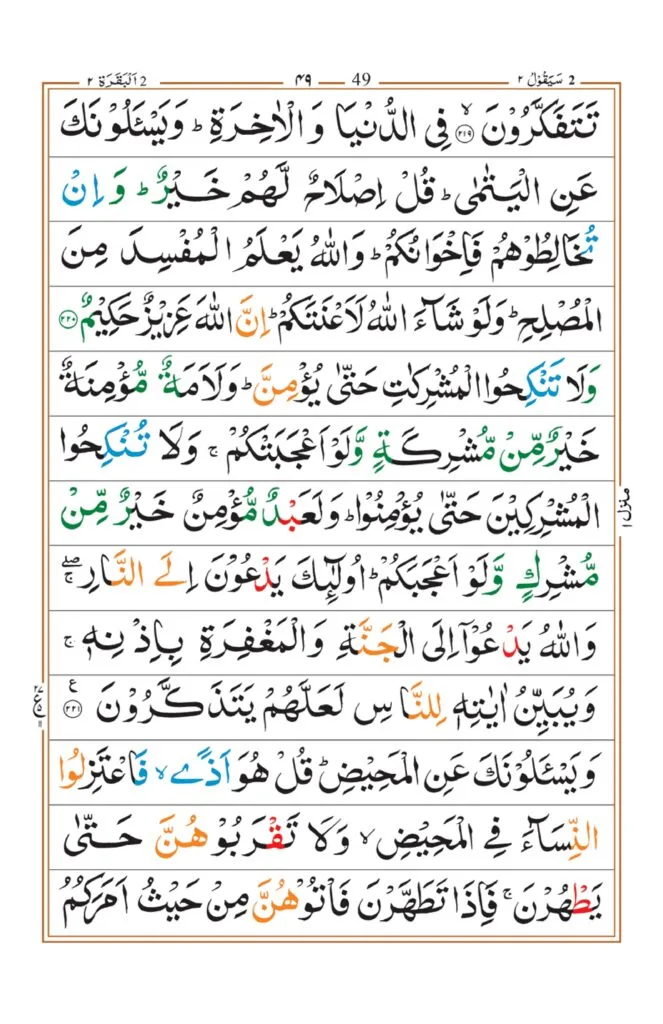 2 سَيَقُوْلُ ٢ 49 ٤٩ 2 اَلْبَقَرَة ٢
تَتَفَكَّرُوْنَ ۙ‏﴿۲۱۹﴾ فِى الدُّنْيَا وَ الْاٰخِرَةِ ؕ وَيَسْــَٔلُوْنَكَ
عَنِ الْيَتٰمٰى ؕ قُلْ اِصْلَاحٌ لَّهُمْ خَيْرٌ ؕ وَ اِنْ
تُخَالِطُوْهُمْ فَاِخْوَانُكُمْ ؕ وَاللّٰهُ يَعْلَمُ الْمُفْسِدَ مِنَ
الْمُصْلِحِ ؕ وَلَوْ شَآءَ اللّٰهُ لَاَعْنَتَكُمْ ؕ اِنَّ اللّٰهَ عَزِيْزٌ حَكِيْمٌ ﴿۲۲۰﴾
وَلَا تَنْكِحُوا الْمُشْرِكٰتِ حَتّٰى يُؤْمِنَّ ؕ وَلَاَمَةٌ مُّؤْمِنَةٌ
خَيْرٌ مِّنْ مُّشْرِكَةٍ وَّلَوْ اَعْجَبَتْكُمْ ۚ وَلَا تُنْكِحُوا
الْمُشْرِكِيْنَ حَتّٰى يُؤْمِنُوْا ؕ وَلَعَبْدٌ مُّؤْمِنٌ خَيْرٌ مِّنْ
مُّشْرِكٍ وَّلَوْ اَعْجَبَكُمْ ؕ اُولٰٓئِكَ يَدْعُوْنَ اِلَى النَّارِ ۖۚ
وَاللّٰهُ يَدْعُوْٓا اِلَى الْجَنَّةِ وَالْمَغْفِرَةِ بِاِذْنِهٖ ۚ
وَيُبَيِّنُ اٰيٰتِهٖ لِلنَّاسِ لَعَلَّهُمْ يَتَذَكَّرُوْنَ ﴿۲۲۱﴾ ع
وَيَسْــَٔلُوْنَكَ عَنِ الْمَحِيْضِ ؕ قُلْ هُوَ اَذًى ۙ فَاعْتَزِلُوا
النِّسَآءَ فِى الْمَحِيْضِ ۙ وَلَا تَقْرَبُوْهُنَّ حَتّٰى
يَطْهُرْنَ ۚ فَاِذَا تَطَهَّرْنَ فَاْتُوْهُنَّ مِنْ حَيْثُ اَمَرَكُمُ
منزل ١